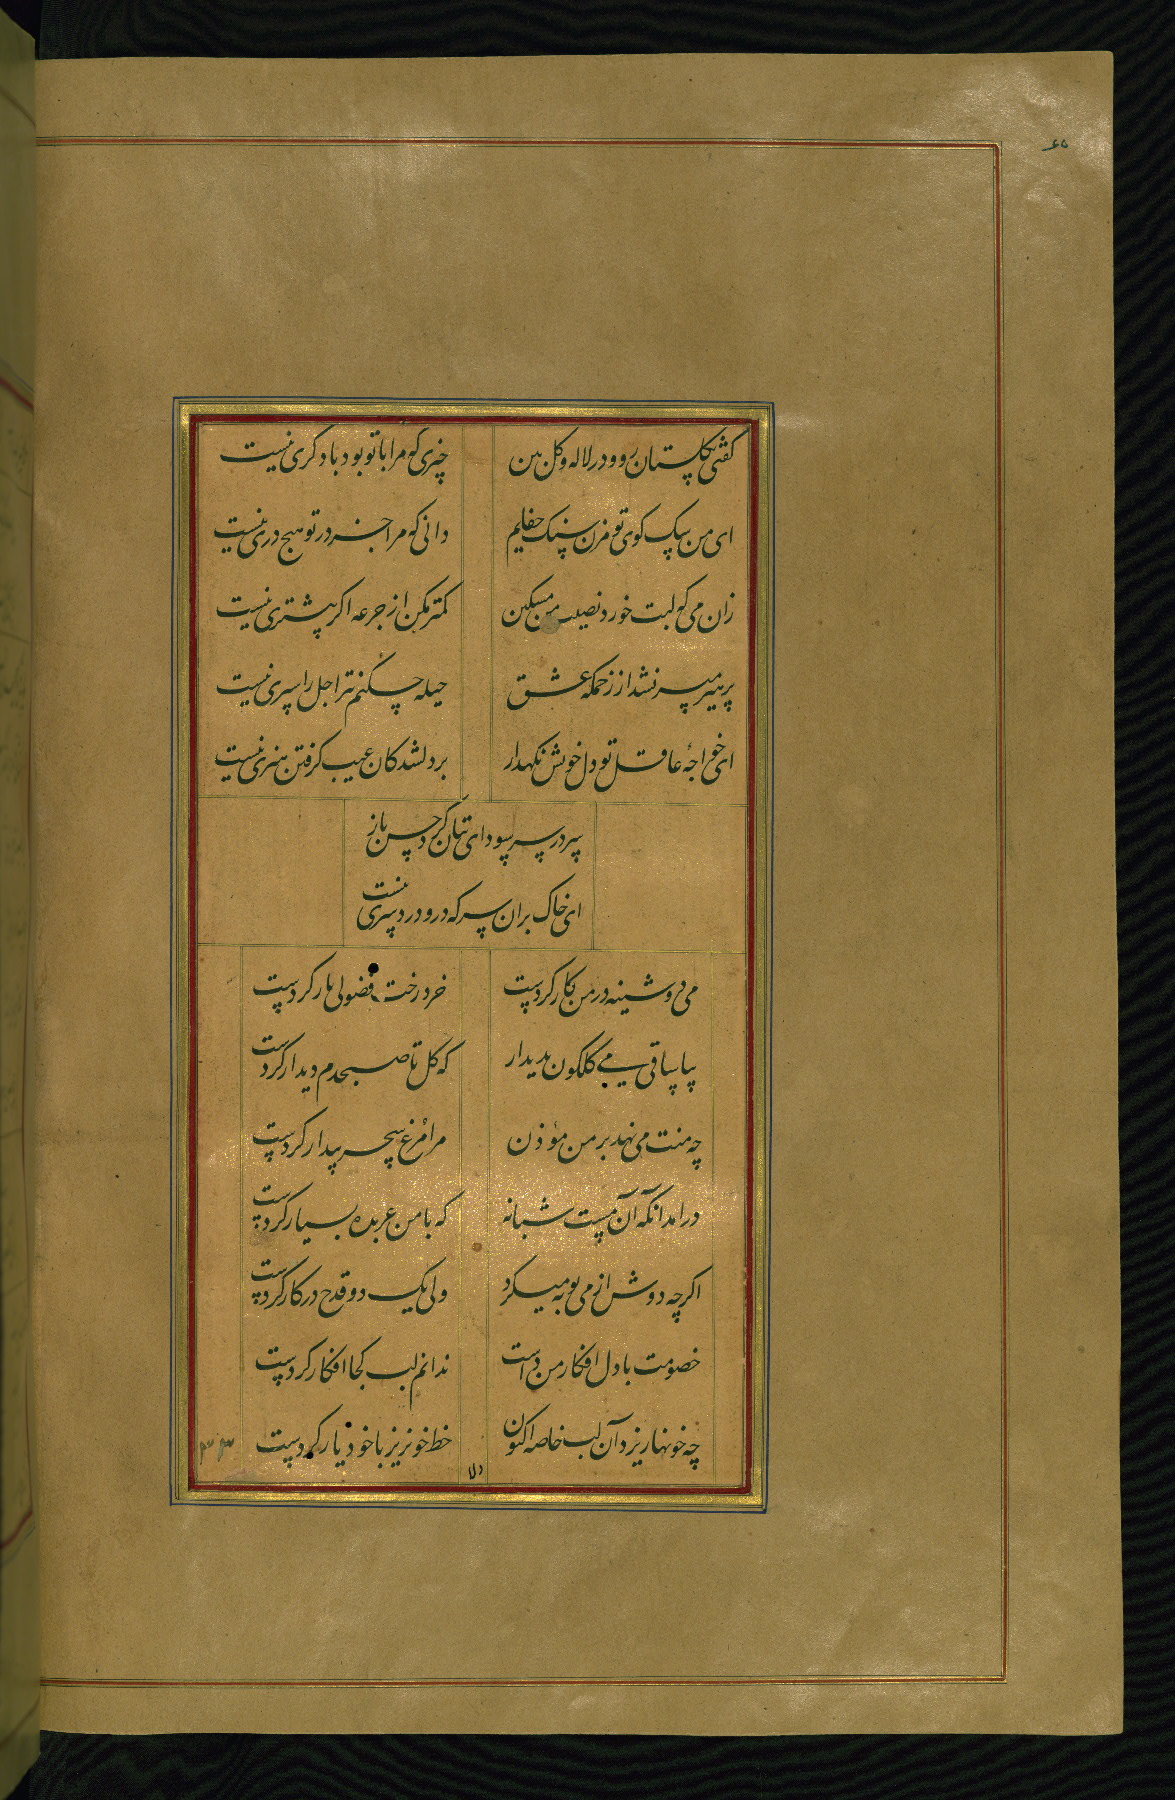 ۶۵
گفتی بگلستان رو و در لاله و گل بین چیزی که مرا با تو بود با دگری نیست
ای من سگ کوی تو مزن سنگ جفایم دانی که مرا جز در تو هیچ دری نیست
زان می که لبت خورد نصیب من مسکین کمتر مکن از جرعه اگر بیشتری نیست
پرهیز میسر نشد از زخمگه عشق حیله چکنم تیر اجل را سپری نیست
ای خواجهٔ عاقل تو دل خویش نگهدار بر دلشدگان عیب گرفتن هنری نیست
پیر در سر سودای بتان کرد حسن باز
ای خاک بران سر که درو درد سری نیست
می دوشینه در من کار کردست خرد رخت فضولی بار کردست
بیا ساقی می گلگون بدیدار که گل تا صبحدم دیدار کردست
چه منت می نهد بر من مؤذن مرا مرغ سحر بیدار کردست
درآمد آنگه آن مست شبانه که با من عربده بسیار کردست
اگرچه دوش از می توبه میکرد ولی یک دو قدح در کار کردست
خصومت با دل افگار من داشت ندانم لب کجا افگار کردست
چه خونها ریزد آن لب خاصه اکنون خط خونریز با خود یار کردست
دلا
۳۳